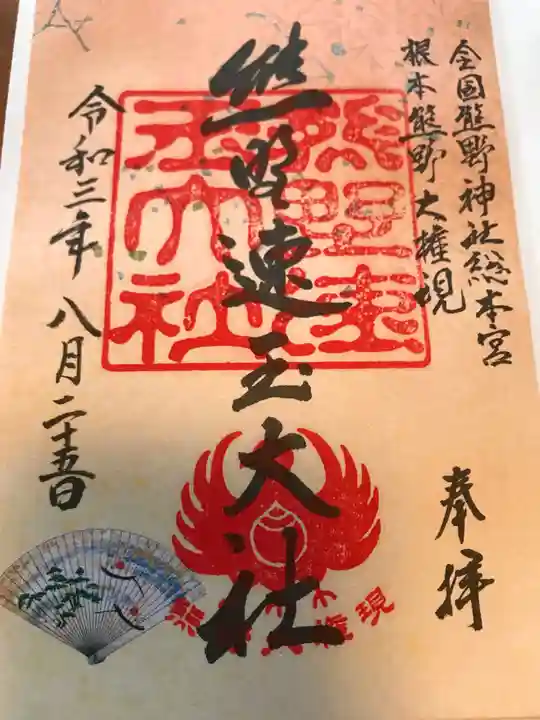 全国熊野神社総本宮
根本熊野大権現
奉拝
熊野速玉大社
熊野速玉大社
令和三年八月二十五日